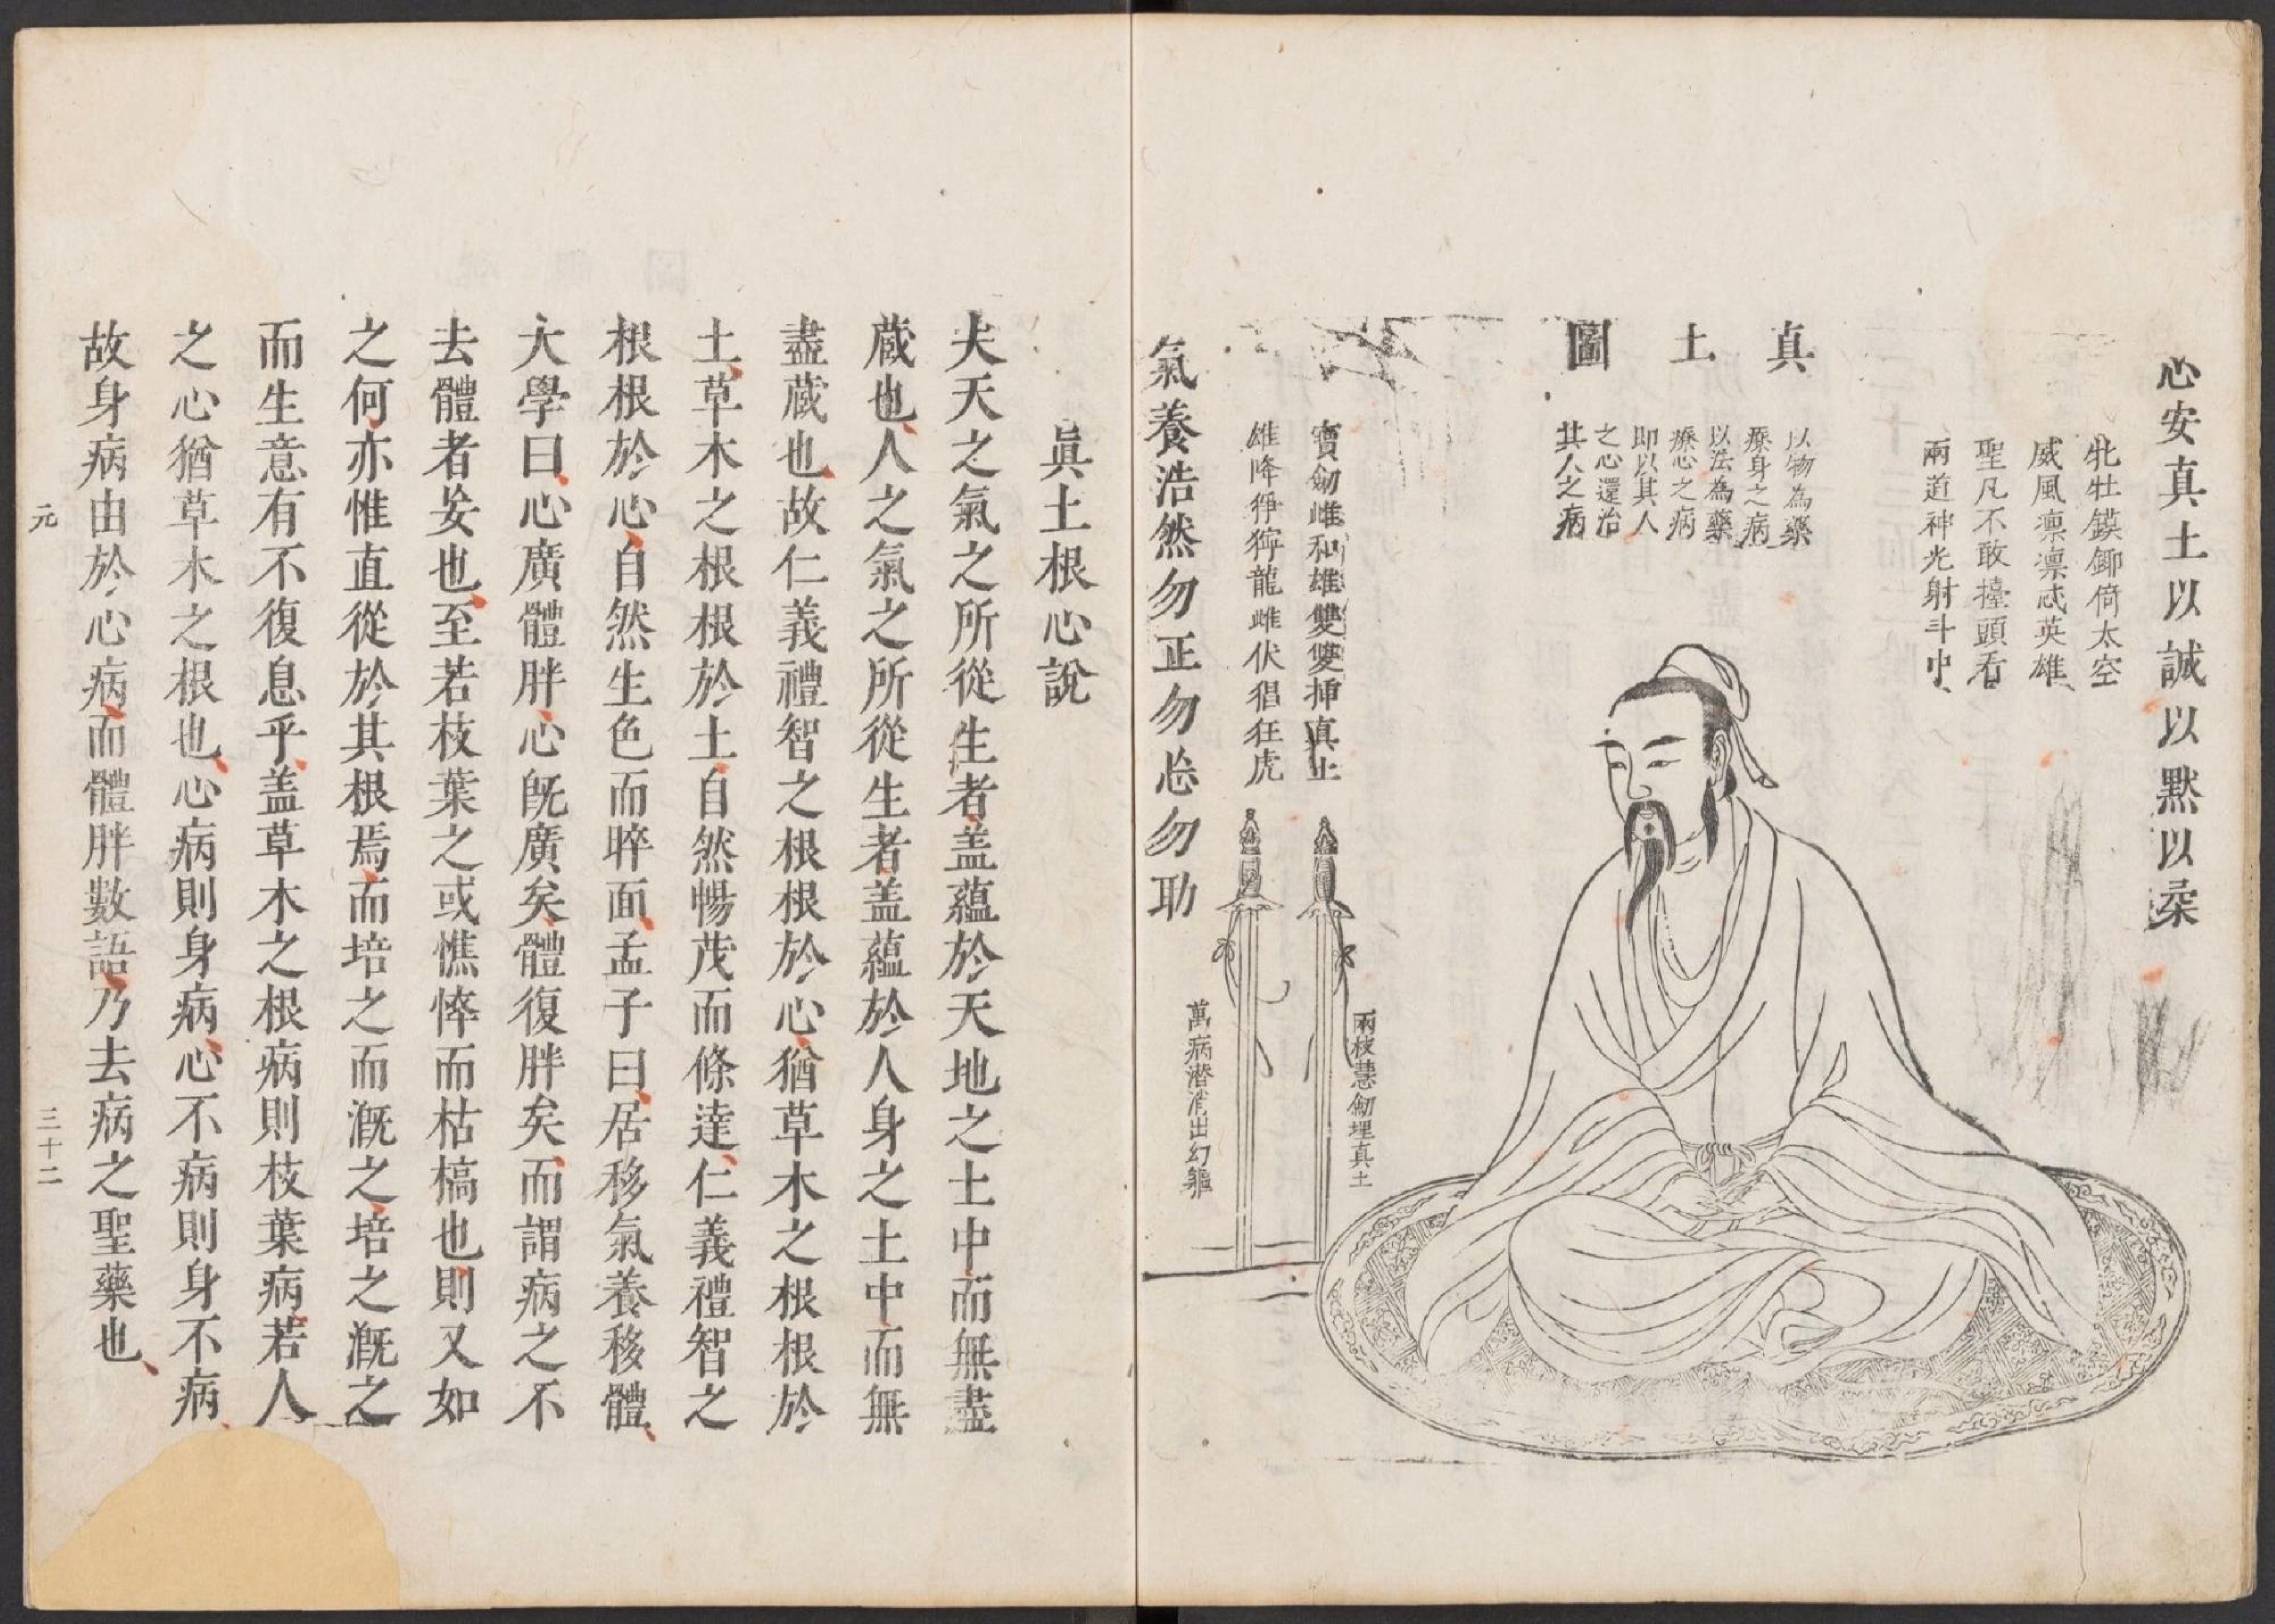 心安真土以誠以默以柔
牝牡鏌鎁倚太空
威風凛凛忒英雄
聖凡不敢擡頭看
兩道神光射斗中
真土圖
以物為藥
療身之病
以法為藥
療心之病
即以其人
之心還治
其人之病
寶劒雌和雄雙雙揷真土
雄降猙獰龍雌伏猖狂虎
兩枝慧劒埋真土
萬病潜消出幻軀
氣養浩然勿正勿忘勿助
眞土根心說
夫天之氣之所從生者盖蘊於天地之土中而無盡
蔵也人之氣之所從生者盖蘊於人身之土中而無
盡蔵也故仁義禮智之根根於心猶草木之根根於
土草木之根根於土自然暢茂而條達仁義禮智之
根根於心自然生色而睟面孟子曰居移氣養移體
大學曰心廣體胖心旣廣矣體復胖矣而謂病之不
去體者妄也至若枝葉之或憔悴而枯槁也則又如
之何亦惟直從於其根焉而培之而漑之培之漑之
而生意有不復息乎盖草木之根病則枝葉病若人
之心猶草木之根也心病則身病心不病則身不病
故身病由於心病而體胖數語乃去病之聖藥也
元
三十二